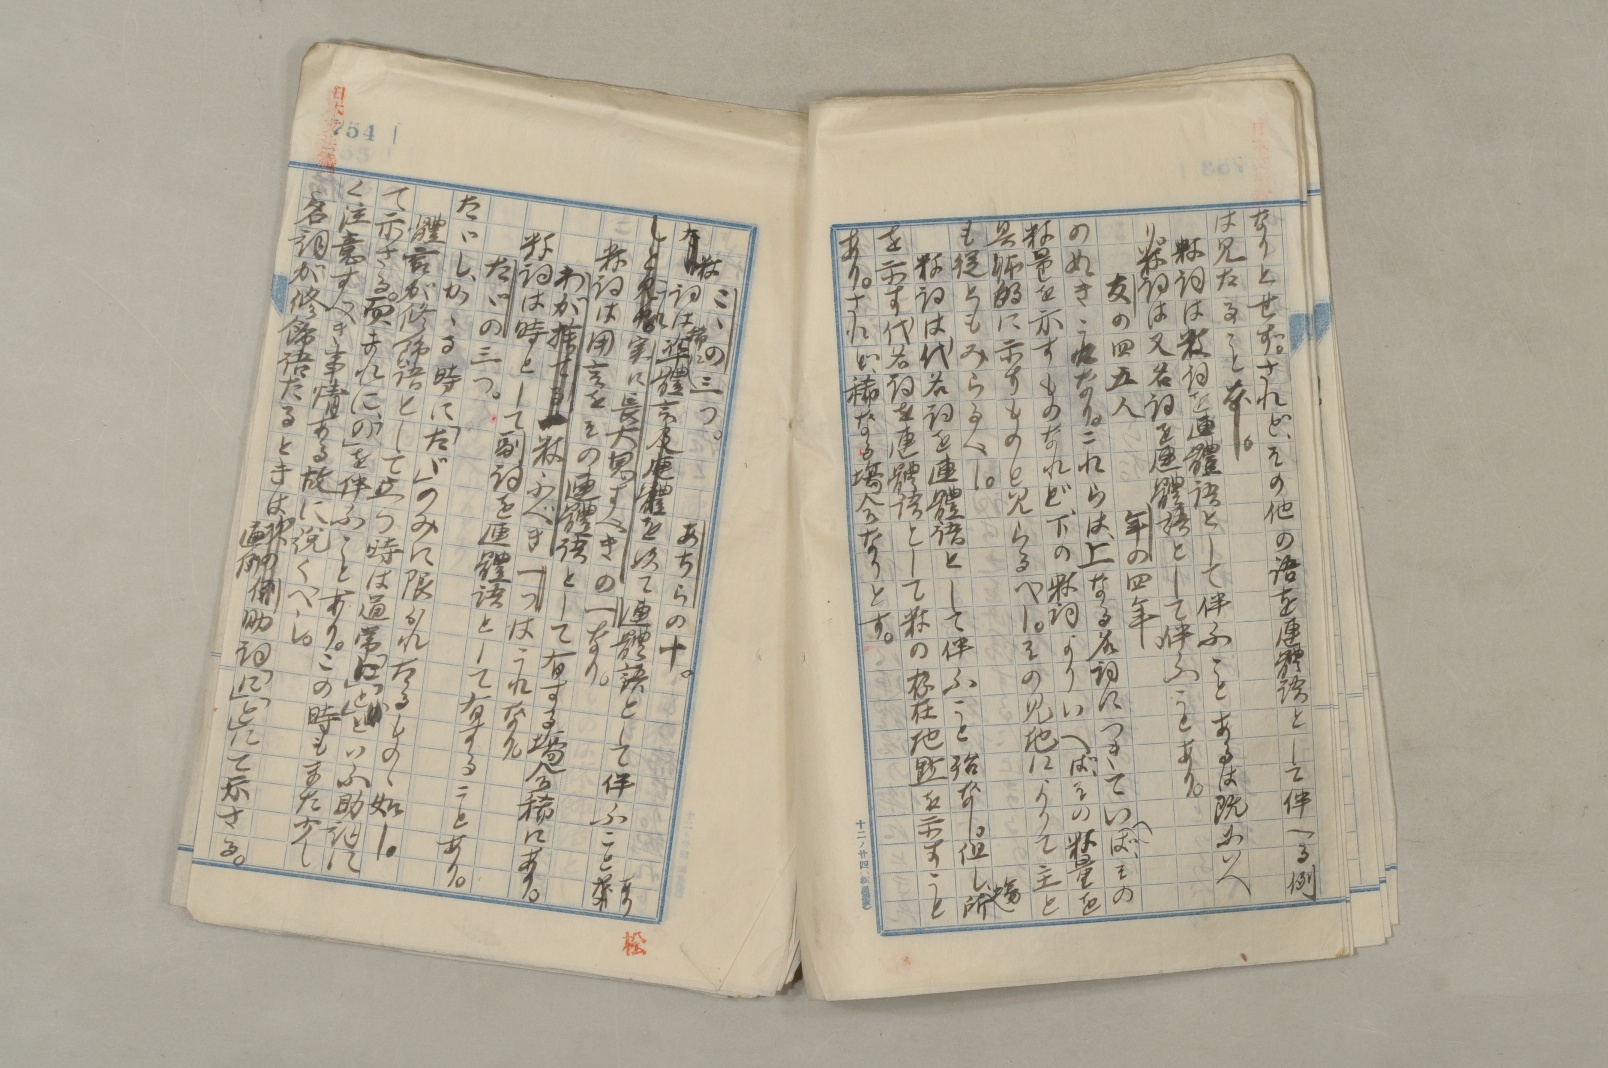 なりとせず。されど、その他の語を連體語として伴へる例
は見たること なし。
數詞は數詞を連體語として伴ふことあるは既にいへ
り。數詞は又名詞を連體語として伴ふことあり。
友の四五人 年の四年
のぬきこれなり。これらは、上なる名詞につきていへば、その
數量を示すものなれど、下の數詞よりいへばその數量を
具體的に示すものと見らるべし。その見地によりて主と
も從ともみらるべし。
數詞は代名詞を連體語として伴ふこと殆なし。但し、場所
を示す代名詞を連體語として數の存在地點を示すこと
あり。されど、稀なる場合なりとす。
こゝの三つ。 あちらの十。
數詞は準體言及連體を以て連體語として伴ふことあり
しと見え
實に長大息すべきの一なり。
數詞は用言をその連體語として有する場合稀にあり。
わが推して數ふべき一つはこれなり
數詞は時として副詞を連體語として有することあり。
たゞの三つ。
たゞし、かゝる時に「たゞ」のみに限られたるものゝ如し。
體言が修飾語として立つ時は通常「に」「と」といふ助詞に
て示さる。而、まれに、「の」を伴ふことあり。この時もまた少し
く注意すべき事情ある故に説くべし。
名詞が修飾語たるときは次の例 助詞「に」「と」にて示さる。
754
松